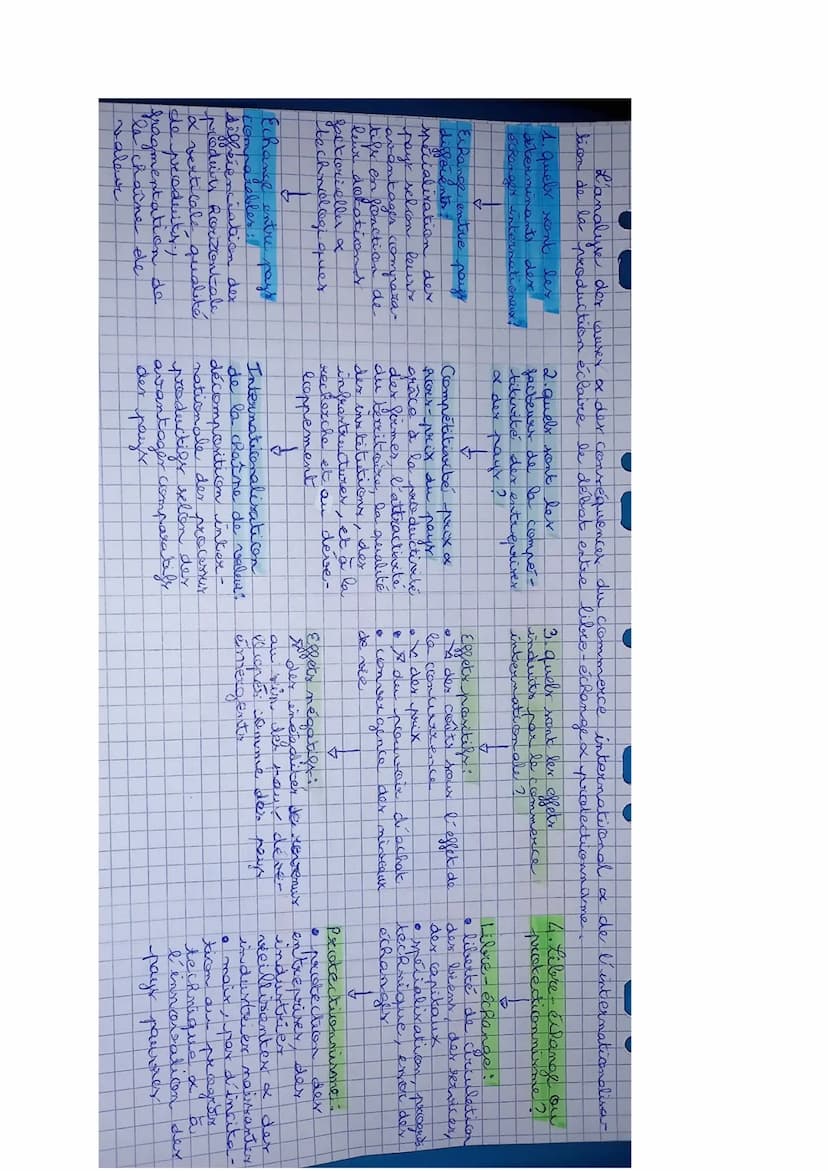 L'analyse des causes & des conséquences du commerce international & de l'internationalisa-
tion de la production éclaire le débat entre libre-échange & protectionnisme.
1. Quels sont les
déterminants des
échanges internationaux?
↓
Echange entre pays
différents:
spécialisation des
pays selon leurs
avantages compara-
tifs en fonction de
leur dotations
factorielles &
technologiques
↓
Echange entre pays
comparables:
différenciation des
produits horizontale
& verticale, qualité
de produits,
fragmentation de
la chaîne de
valeur
2. Quels sont les
facteurs de la compé-
titivité des entreprises
& des pays?
↓
Compétitivité-prix &
hors-prix du pays
grâce à la productivité
des firmes, l'attractivité
du térritoire, la qualité
des institutions, des
infrastructures, et à la
recherche et au déve-
loppement
↓
Internationalisation
de la chaîne de valeur:
décomposition inter-
nationale des processus
productifs selon des
avantages comparatifs
des pays
3. Quels sont les effets
induits par le commerce
international?
↓
Effets positifs:
• ↘ des coûts sous l'effet de
la concurrence
• ↘ des prix
• ↗ du pouvoir d'achat
• convergence des niveaux
de vie
↓
Effets négatifs:
↗ des inégalités de revenus
au sein des pays déve-
loppés comme des pays
émergents
4. Libre-échange ou
protectionnisme?
↓
Libre-échange:
• liberté de circulation
des biens, des services,
des capitaux
• spécialisation, progrès
technique, essor des
échanges
↓
Protectionnisme:
• protection des
entreprises, des
industries
vieillissantes & des
industries naissantes
• mais, pas d'incita-
tion au progrès
technique & à
l'innovation des
pays pauvres